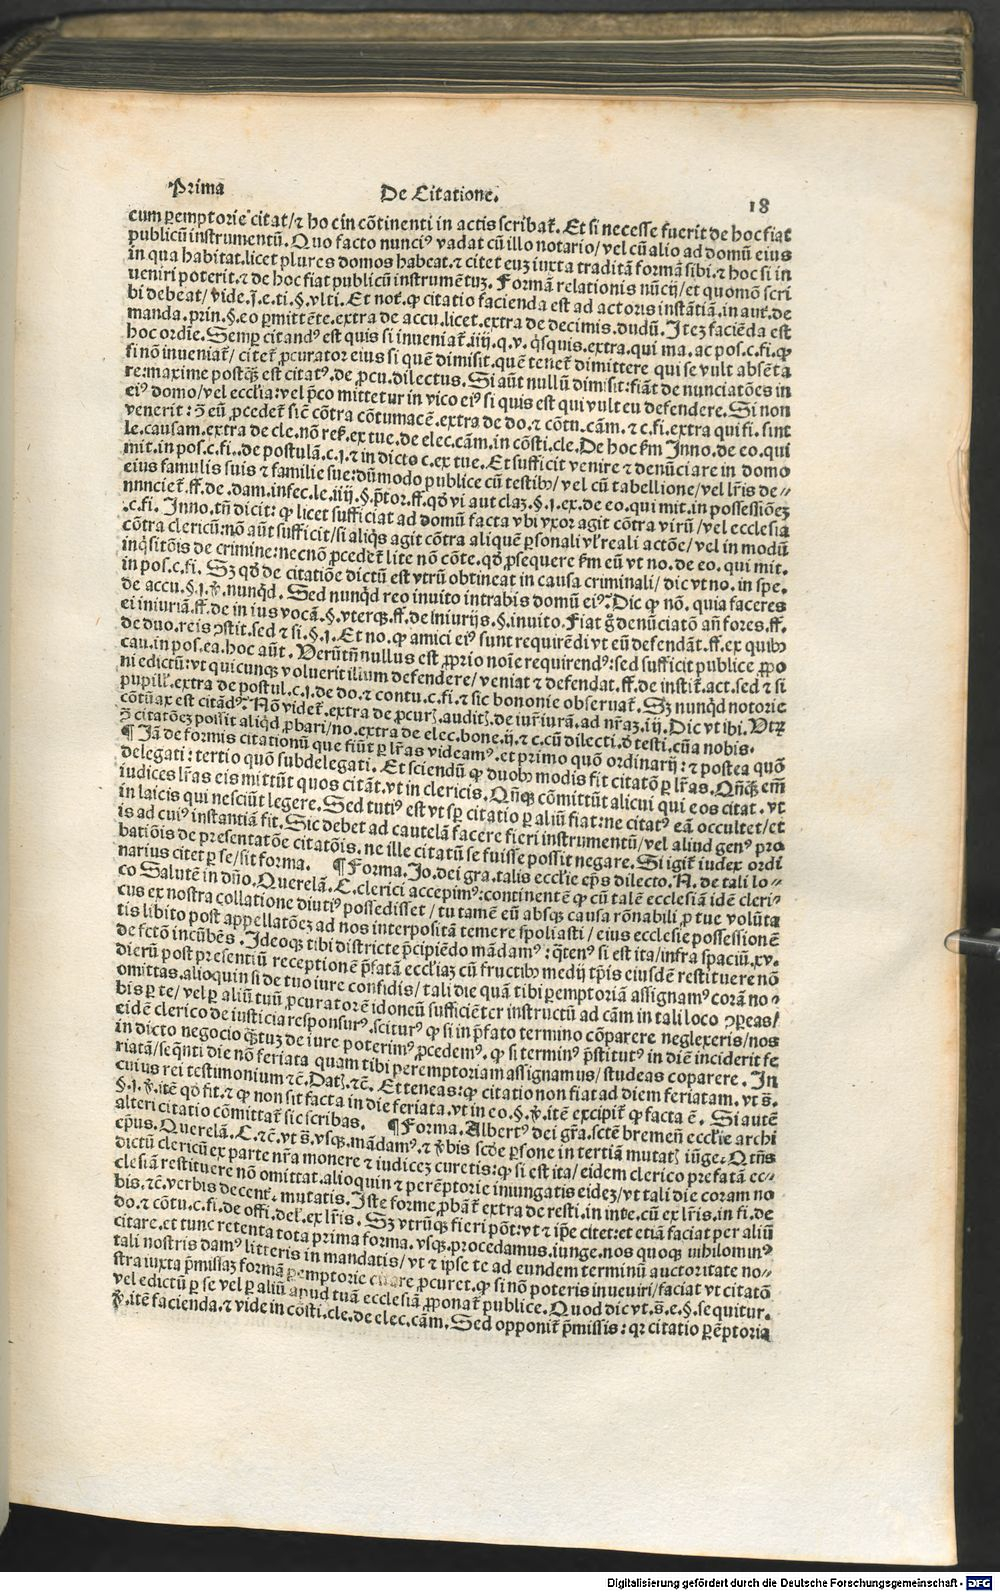 Prima De Citatione. 18
cum ꝑemptorie citat/⁊ ho cin cōtinenti in actis scribat᷑. Et si necesse fuerit de hoc fiat
publicū instrumentū. Quo facto nunciꝰ vadat cū illo notario/vel cū alio ad domū eius
in qua habitat.licet plures domos habeat.⁊ citet euꝫ iuxta traditā formā sibi.⁊ hoc si in
ueniri poterit.⁊ de hoc fiat publicū instrumētuꝫ. Formā relationis nūcij/et quomō scri
bi debeat/ vide.j.e.ti.§.vlti. Et not᷑.ꝙ citatio facienda est ad actoris instātiā.in aut᷑.de
manda.prin.§.eo ꝑmittēte.extra de accu.licet.extra de decimis.dudū. Iteꝫ faciēda est
hoc ordīe. Semꝑ citandꝰ est quis si inueniat᷑.iiij.q.v. q̇squis.extra.qui ma.ac pos.c.fi.ꝙ
si nō inueniat᷑/ citet᷑ ꝓcurator eius si quē dimisit.quē tenet᷑ dimittere qui se vult absēta
re:maxime postq̄ꝫ est citatꝰ.de ꝓcu.dilectus. Si aūt nullū dimisit:fiāt de nunciatōes in
eiꝰ domo/vel ecclīa:vel p̄co mittetur in vico eiꝰ si quis est qui vult eū defendere. Si non
venerit: ꝯ̄ eū ꝓcedet᷑ sicē cōtra cōtumacē.extra de do.⁊ cōtu.cām.⁊ c.fi.extra qui fi. sint
le.causam.extra de cle.nō res̄.ex tue.de elec.cām.in cōsti.cle. De hoc s̄m Inno.de eo.qui
mit.in pos.c.fi..de postulā.c.j.⁊ in dicto c.ex tue. Et sufficit venire ⁊ denūciare in domo
eius famulis suis ⁊ familie sue:dūmodo publice cū testibꝰ/ vel cū tabellione/vel lr̄is de⸗
nnnciet᷑.ff.de .dam.infec.le.iiij.§.p̄tor.ff.qd̄ vi aut claꝫ.§.j.ex.de eo.qui mit.in possessiōeꝫ
.c.fi. Inno.tn̄ dicit: ꝙ licet sufficiat ad domū facta vbi vxor agit cōtra virū/vel ecclesia
cōtra clericū:nō aūt sufficit/si aliq̇s agit cōtra aliquē ꝑsonali vl᷑ reali actōe/vel in modū
inq̇sitōis de crimine:necnō ꝓcedet᷑ lite nō cōte.qd̄ ꝓsequere s̄m eū vt no.de eo.qui mit.
in pos.c.fi. Sꝫ qd̄ de citatiōe dictū est vtrū obtineat in causa criminali/ dic vt no.in spe.
de accu.§.j.ꝟ.nunq̇d. Sed nunq̇d reo inuito intrabis domū eiꝰ? Dic ꝙ nō. quia faceres
ei iniuriā.ff.de in ius vocā.§.vterqꝫ.ff.de iniurijs.§.inuito. Fiat g̊ denūciatō an̄ fores.ff.
de duo.reis ꝯstit.sed ⁊ si.§.j. Et no.ꝙ amici eiꝰ sunt requirēdi vt eū defendāt.ff.ex quibꝰ
cau.in pos.ea.hoc aūt. Verūtn̄ nullus est ꝓprio noīe requirendꝰ:sed sufficit publice ꝓpo
ni edictū:vt quicunqꝫ voluerit illum defendere/ veniat ⁊ defendat.ff.de instit᷑.act.sed ⁊ si
pupill᷑.extra de postul.c.j.de do.⁊ contu.c.fi.⁊ sic bononie obseruat᷑. Sꝫ nunq̇d notorie
cōtūax est citādꝰ? Nō videt᷑.extra de ꝓcur̄.audit̄.de iur᷑iurā.ad nr̄aꝫ.iij. Dic vt ibi. Vtꝝ
ꝯ̄ citatōeꝫ possit aliq̇d ꝓbari/no.extra de elec.bone.ij.⁊ c.cū dilecti.⁊ d̄ testi.cū a nobis.
¶ Iā de formis citationū que fiūt ꝑ lr̄as videamꝰ.et primo quō ordinarij:⁊ postea quō
delegati: tertio quō subdelegati. Et sciendū ꝙ duobꝰ modis fit citatō ꝑ lr̄as. Qn̄qꝫ em̄
iudices lr̄as eis mittūt quos citāt.vt in clericis. Qn̄qꝫ cōmittūt alicui qui eos citat. vt
in laicis qui nesciūt legere. Sed tutiꝰ est vt sꝑ citatio ꝑ aliū fiat:ne citatꝰ eā occultet/et
is ad cuiꝰ instantiā fit. Sic debet ad cautelā facere fieri instrumentū/vel aliud genꝰ pro
batiōis de presentatōe citatōis.ne ille citatū se fuisse possit negare. Si igit᷑ iudex ordi
narius citet ꝑ se/sit forma. ¶Forma.Io.dei gra.talis ecclīe ep̄s dilecto.A.de tali lo⸗
co Salutē in dn̄o.Querelā.C.clerici accepimꝰ:continentē ꝙ cū talē ecclesiā idē cleri⸗
cus ex nostra collatione diutiꝰ possedisset / tu tamē eū absqꝫ causa rōnabili ꝓ tue volūta
tis libito post appellatōeꝫ ad nos interpositā temere spoliasti / eius ecclesie possessionē
de fctō incūbēs. Ideoqꝫ tibi districte p̄cipiēdo mādamꝰ: q̄tenꝰ si est ita/infra spaciū.xv.
dierū post presentiū receptionē p̄fatā ecclīaꝫ cū fructibꝰ medij tp̄is eiusdē restituere nō
omittas.alioquin si de tuo iure confidis/ tali die quā tibi ꝑemptoriā assignamꝰ corā no⸗
bis ꝑ te/ vel ꝑ aliū tuū ꝓcuratorē idoneū sufficiēter instructū ad cām in tali loco ꝯpareas/
eidē clerico de iusticia responsurꝰ.sciturꝰ ꝙ si in p̄fato termino cōparere neglexeris/nos
in dicto negocio q̄tuꝫ de iure poterimꝰ ꝓcedemꝰ. ꝙ si terminꝰ p̄stitutꝰ in diē inciderit fe
riatā/seq̄nti die nō feriata quam tibi peremptoriam assignamus/ studeas coparere. In
cuius rei testimonium ⁊c̄.Dat̄.⁊c̄. Et teneas:ꝙ citatio non fiat ad diem feriatam. vt s̄.
§.j.ꝟ.itē qd̄ fit.⁊ ꝙ non sit facta in die feriata.vt in eo.§.ꝟ.itē excipit᷑ ꝙ facta ē. Si autē
alteri citatio cōmittat᷑ sic scribas. ¶Forma.Albertꝰ dei gr̄a.sctē bremeñ ecclīe archi
ep̄us.Querelā.C.⁊c̄.vt s̄.vsqꝫ.mādamꝰ.⁊ ꝟbis scd̄e ꝑsone in tertiā mutat̄ iūge. Qtn̄s
dictū clericū ex parte nr̄a monere ⁊ iudiceꝫ curetis:ꝙ si est ita/ eidem clerico prefatā ec⸗
clesiā restituere nō omittat.alioquin ⁊ perēptorie iniungatis eideꝫ/vt tali die coram no
bis.⁊c̄.verbis decent᷑.mutatis. Iste forme ꝓbāt᷑ extra de resti.in inte.cū ex lr̄is.in fi.de
do.⁊ cōtu.c.fi.de offi.del᷑.ex lr̄is. Sꝫ vtrūqꝫ fieri pōt:vt ⁊ ip̄e citet:et etiā faciat per aliū
citare.et tunc retenta tota prima forma. vsqꝫ.procedamus.iunge.nos quoqꝫ nihilominꝰ
tali nostris damꝰ litteris in mandatis/ vt ⁊ ipse te ad eundem terminū auctoritate no⸗
stra iuxta p̄missaꝫ formā ꝑemptorie citare ꝓcuret.ꝙ si nō poteris inueuiri/faciat vt citatō
vel edictū ꝑ se vel ꝑ aliū apud tuā ecclesiā ꝓponat᷑ publice. Quod dic vt.s̄.e.§.sequitur.
ꝟ.itē facienda.⁊ vide in cōsti.cle.de elec.cām. Sed opponit᷑ p̄missis: qꝛ citatio ꝑēptoria
Digitalisierung gefördert durch die Deutsche Forschungsgemeinschaft - DFG